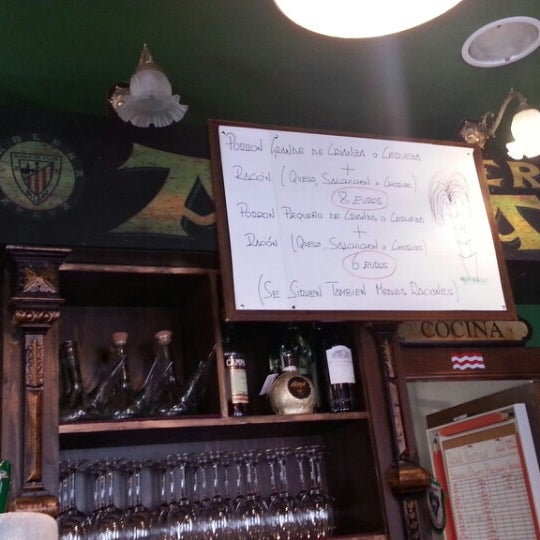 PORRON GRANDE DE CRIANZA O CERVEZA
+
RACIÓN (QUESO, SALCHICHON O CHORIZO)
8 EUROS
PORRON PEQUEÑO DE CRIANZA O CERVEZA
+
RACIÓN (QUESO, SALCHICHON O CHORIZO)
6 EUROS
(SE SIRVEN TAMBIEN MEDIAS RACIONES)
COCINA